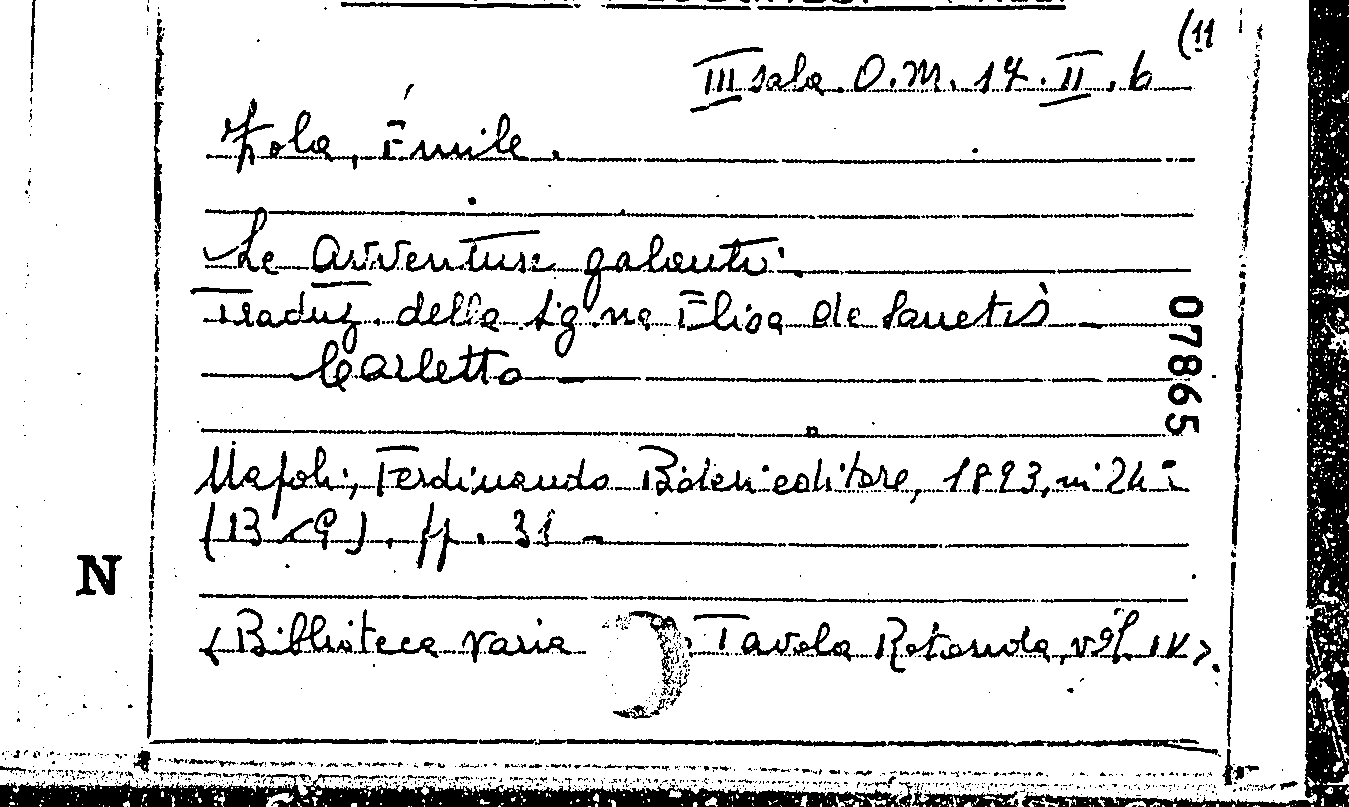 (11
III sala. O.M. 17. II. 6
Zola, Émile.
Le Avventure galanti.
Traduz. della Sig.na Elisa De Sanctis
Carletto
07865
Napoli, Ferdinando Bideri editore, 1893, in 24°
(13 x 9). pp. 31
N
(Biblioteca varia Tavola Rotonda, vol. IV).